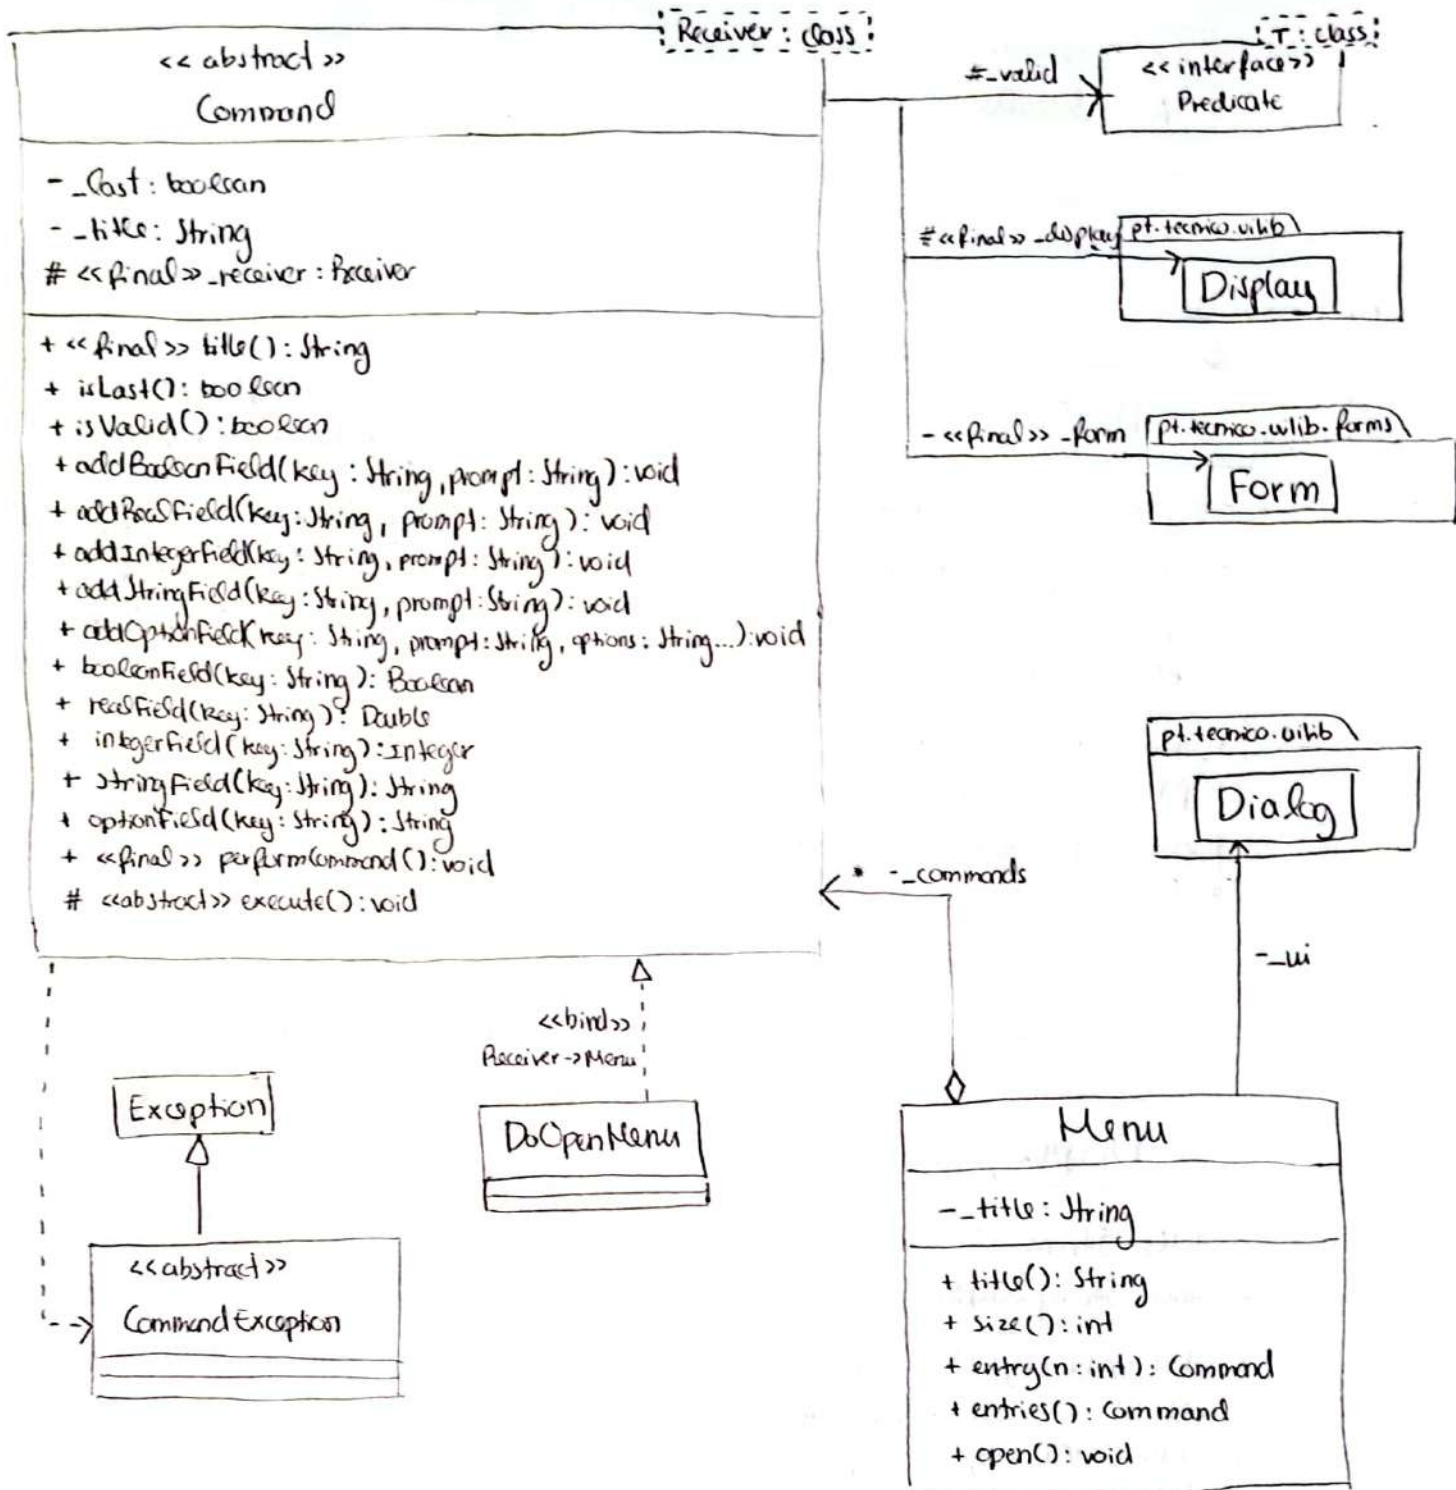 Receiver : class
<<abstract>>
Command
- _last: boolean
- _title: String
# <<final>> _receiver: Receiver
+ <<final>> title(): String
+ isLast(): boolean
+ isValid(): boolean
+ addBooleanField(key: String, prompt: String): void
+ addRealField(key: String, prompt: String): void
+ addIntegerField(key: String, prompt: String): void
+ addStringField(key: String, prompt: String): void
+ addOptionField(key: String, prompt: String, options: String...): void
+ booleanField(key: String): Boolean
+ realField(key: String): Double
+ integerField(key: String): Integer
+ stringField(key: String): String
+ optionField(key: String): String
+ <<final>> performCommand(): void
# <<abstract>> execute(): void
#_valid
T : class
<<interface>>
Predicate
#<<final>> _display
pt.tecnico.uilib
Display
- <<final>> _form
pt.tecnico.uilib.forms
Form
pt.tecnico.uilib
Dialog
* -_commands
-_ui
<<bind>>
Receiver->Menu
Exception
DoOpenMenu
<<abstract>>
CommandException
Menu
-_title: String
+ title(): String
+ size(): int
+ entry(n: int): Command
+ entries(): Command
+ open(): void